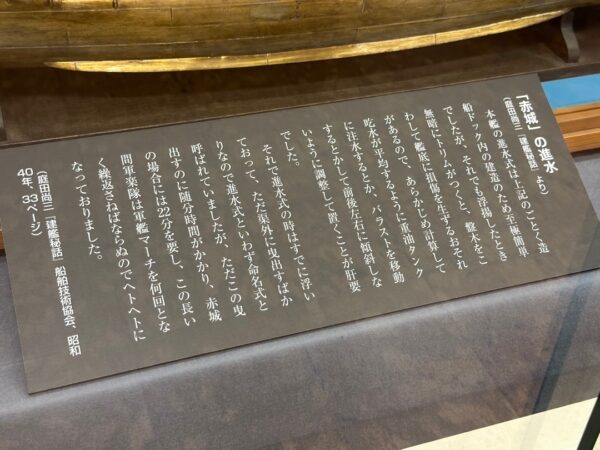 「赤城」の進水
（庭田尚三「建艦秘話」より）
本艦の進水式は上記のごとく造
船ドック内の建造のため至極簡単
でしたが、それでも浮揚したとき
無暗にトリムがつくと、盤木をこ
わして艦底に損傷を生ずるおそれ
があるので、あらかじめ計算して
吃水が平均するように重油タンク
に注水するとか、バラストを移動
するとかして前後左右に傾斜しな
いように調整して置くことが肝要
でした。
それで進水式の時はすでに浮い
ておって、ただ渠外に曳出すばか
りなので進水式といわず命名式と
呼ばれていましたが、ただこの曳
出すのに随分時間がかかり、赤城
の場合には22分を要し、この長い
間軍楽隊は軍艦マーチを何回とな
く繰返さねばならぬのでヘトヘトに
なっておりました。
（庭田尚三「建艦秘話」船舶技術協会、昭和
40年、33ページ）